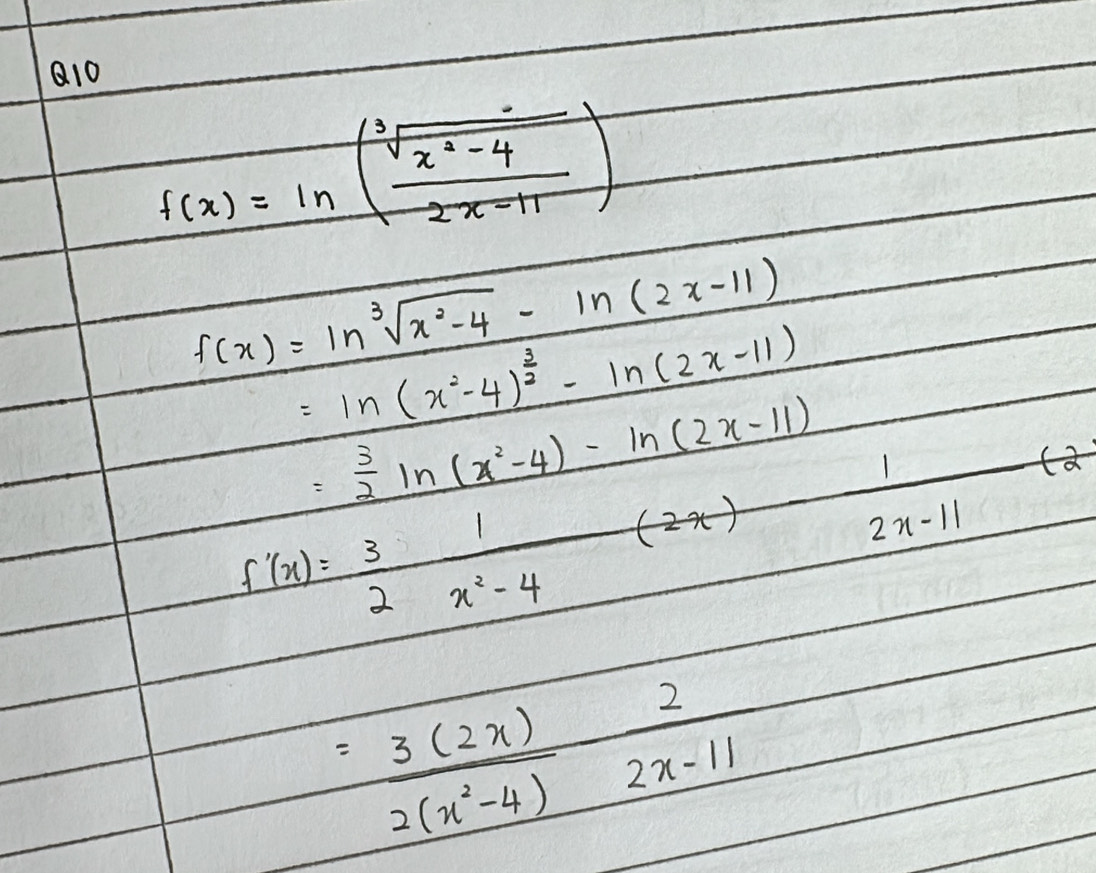 Q10
f(x) = ln (∛(x² - 4) / (2x - 11))
f(x) = ln ∛(x² - 4) - ln (2x - 11)
= ln (x² - 4)^(3/2) - ln (2x - 11)
= 3/2 ln (x² - 4) - ln (2x - 11)
f'(x) = 3/2 1/(x² - 4) (2x) - 1/(2x - 11) (2
= 3(2x)/(2(x² - 4)) - 2/(2x - 11)